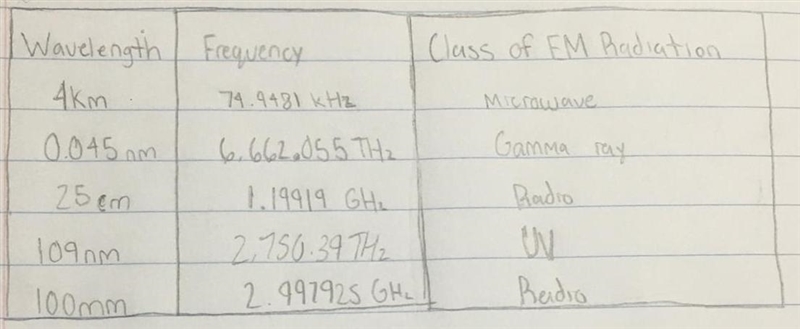 Wavelength Frequency Class of EM Radiation
4Km 74.9481 kHz Microwave
0.045nm 6,662.055THz Gamma ray
25cm 1.19919 GHz Radio
109nm 2,750.39THz UV
100mm 2.997925 GHz Radio